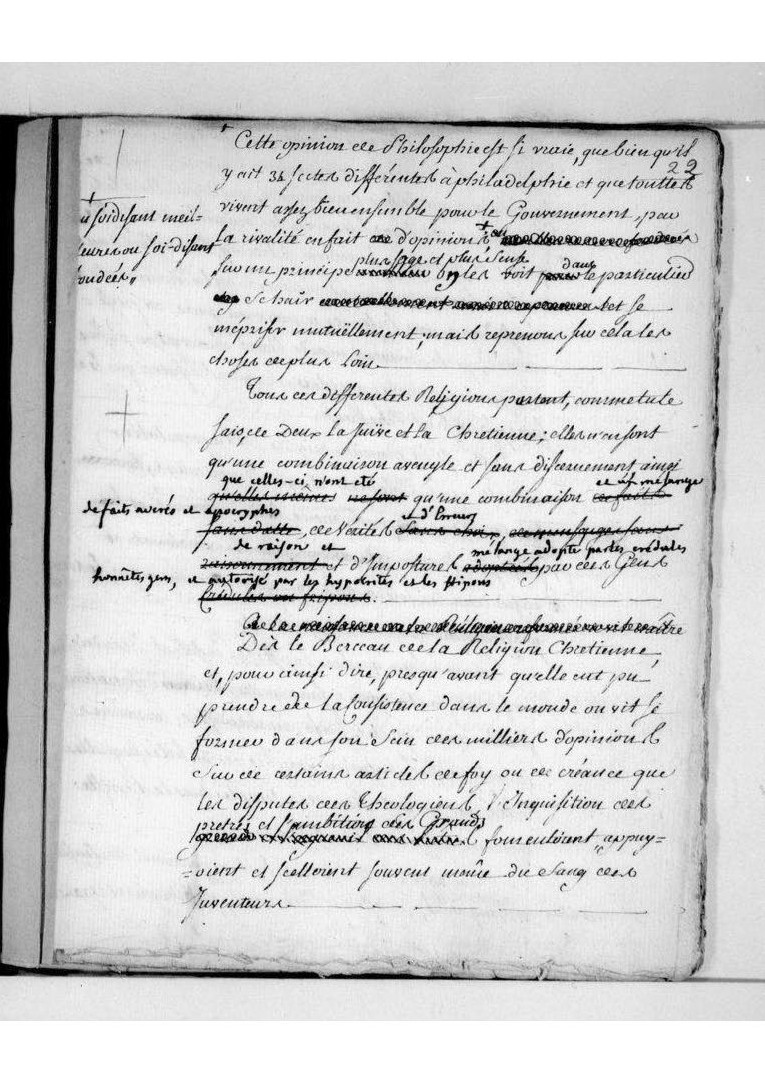 22
Cette opinion de Philosophie est si vraie, que bien qu'il
y ait 34 sectes différentes à philadelphie et que touttes
vivent assez bien ensemble pour le Gouvernement, par
ou soidisant meil=
leures ou soi-disant
fondées"
la rivalité en fait de d'opinions et
plus sage et plus sensé
sur un principe on les voit dans le particulier
se haïr et se
mépriser mutuëllement, mais reprenons sur cela les
choses de plus loin.
Tous ces différentes Religions partent, comme tu le
sais, de Deux la Juive et la Chretienne; elles n'en sont
qu'une combinaison aveugle et sans discernement, ainsi
que celles-ci n'ont été et un mélange
qu'elles mêmes ne sont qu'une combinaison
de faits averés et apocryphes
d'Erreurs
sans datte, de Verités sans choix,
de raison et mélange adopté par les crédules
raisonnement et d'Impostures adoptées par des Gens
honnêtes gens, et autorisé par les hypocrites et les fripons
Crédules ou fripons.
Dès le Berceau de la Religion Chretienne,
et, pour ainsi dire, presqu'avant qu'elle eut pu
prendre de la Consistence dans le monde on vit se
former dans son Sein des milliers d'opinions
Sur de certains articles de foy ou de créance que
les disputes des Théologiens, l'Inquisition des
pretres et l'ambition des Grands
fomentèrent, appuy=
=oient et scelloient souvent même du Sang des
Inventeurs